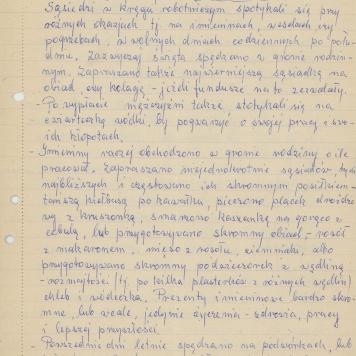 Sąsiedzi w kręgu robotniczym spotykali się przy
różnych okazjach tj. na imieninach, weselach czy
pogrzebach, w wolnych dniach codziennych po połu-
dniu. Zazwyczaj święta spędzano z gronie rodzin-
nym. Zapraszano także najwierniejszą sąsiadkę na
obiad, czy kolację - jeżeli fundusze na to zezwalały.
- Po wypłacie mężczyźni także spotykali się na
ćwiarteczkę wódki, by pogwarzyć o swojej pracy i swo-
ich kłopotach.
- Imieniny raczej obchodzono w gronie rodziny o ile
pracował. Zapraszano niejednokrotnie sąsiadów,
najbliższych i częstowano ich skromnym posiłkiem -
tańszą kiełbasą po kawałku, pieczono placek drożdżo-
wy z kruszonką, smażono kaszankę na gorąco z
cebulą, lub przygotowywano skromny obiad - rosół
z makaronem, mięso z rosołu, ziemniaki, albo
przygotowywano skromny podwieczorek z wędliną
- rozmaitości (tj. po kilka plasterków z różnych wędlin)
chleb i wódeczka. Prezenty imieninowe bardzo skro-
mne, lub wcale, jedynie życzenia - zdrowia, pracy
i lepszej przyszłości.
- Powszednie dni letnie spędzano na podwórkach, lub